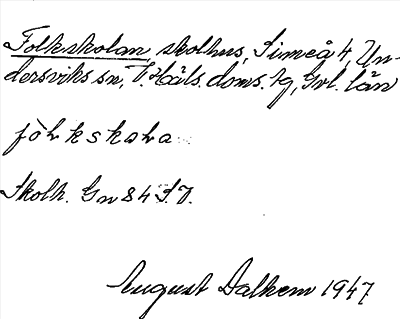 Folkskolan, skolhus, Simeå 4, Un-
dersviks sn, V. Häls. doms. tg, Gvl. län
fòhkskoha
Skolh. Gn 84 S.V.
August Dalhem 1947